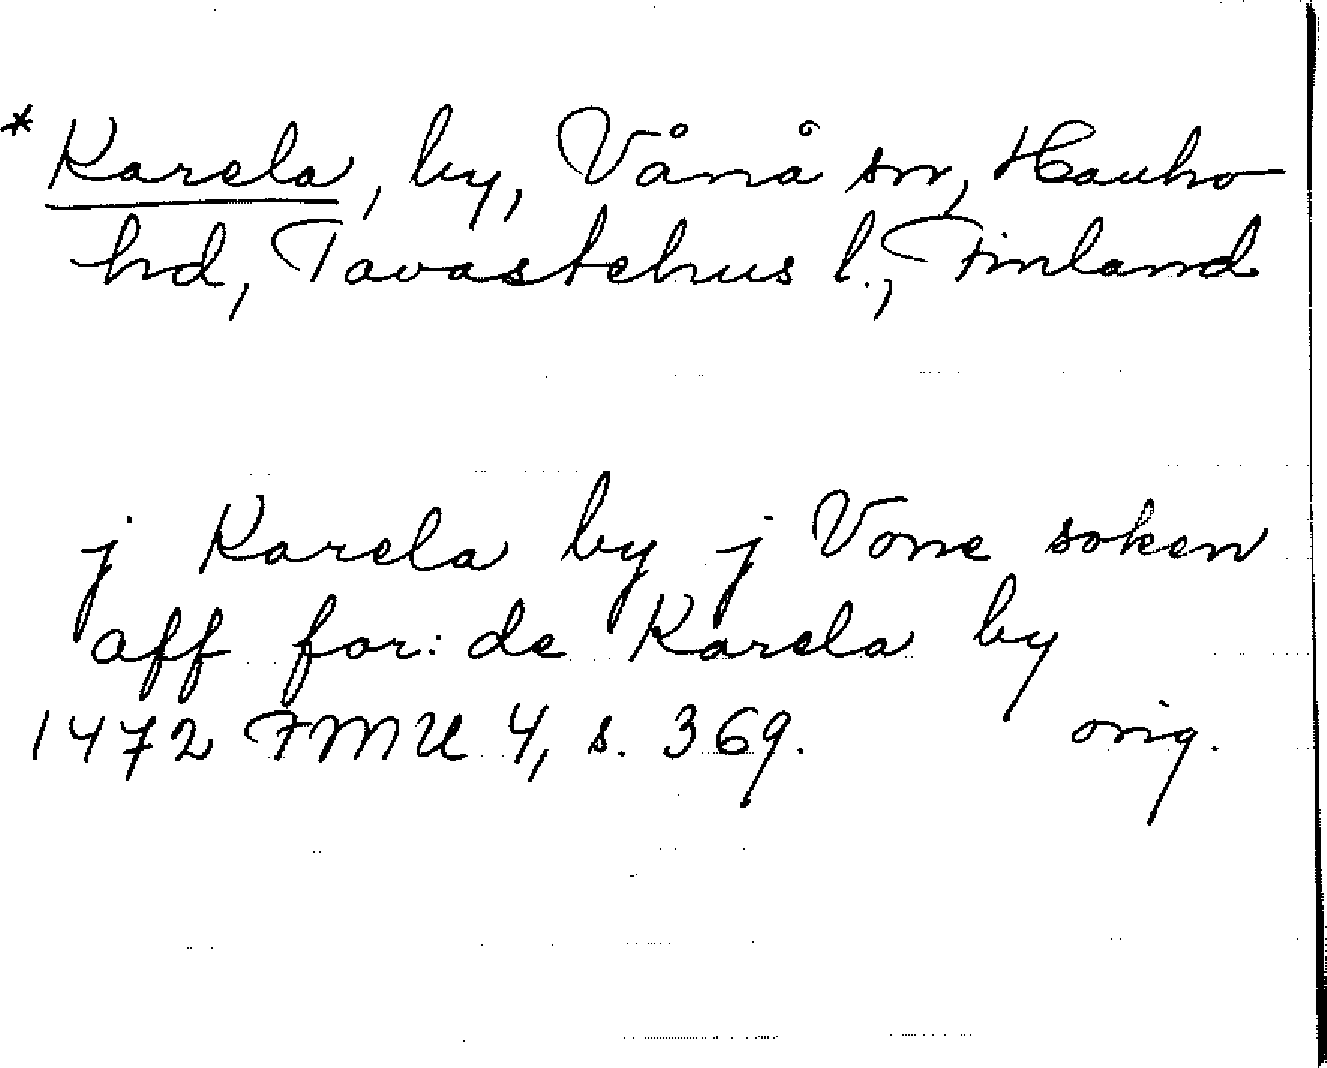 * Karela, by, Vånå sn, Hauho
hd, Tavastehus l., Finland
j Karela by j Vone soken
aff for: de Karela by
1472 FMU 4, s. 369. orig.